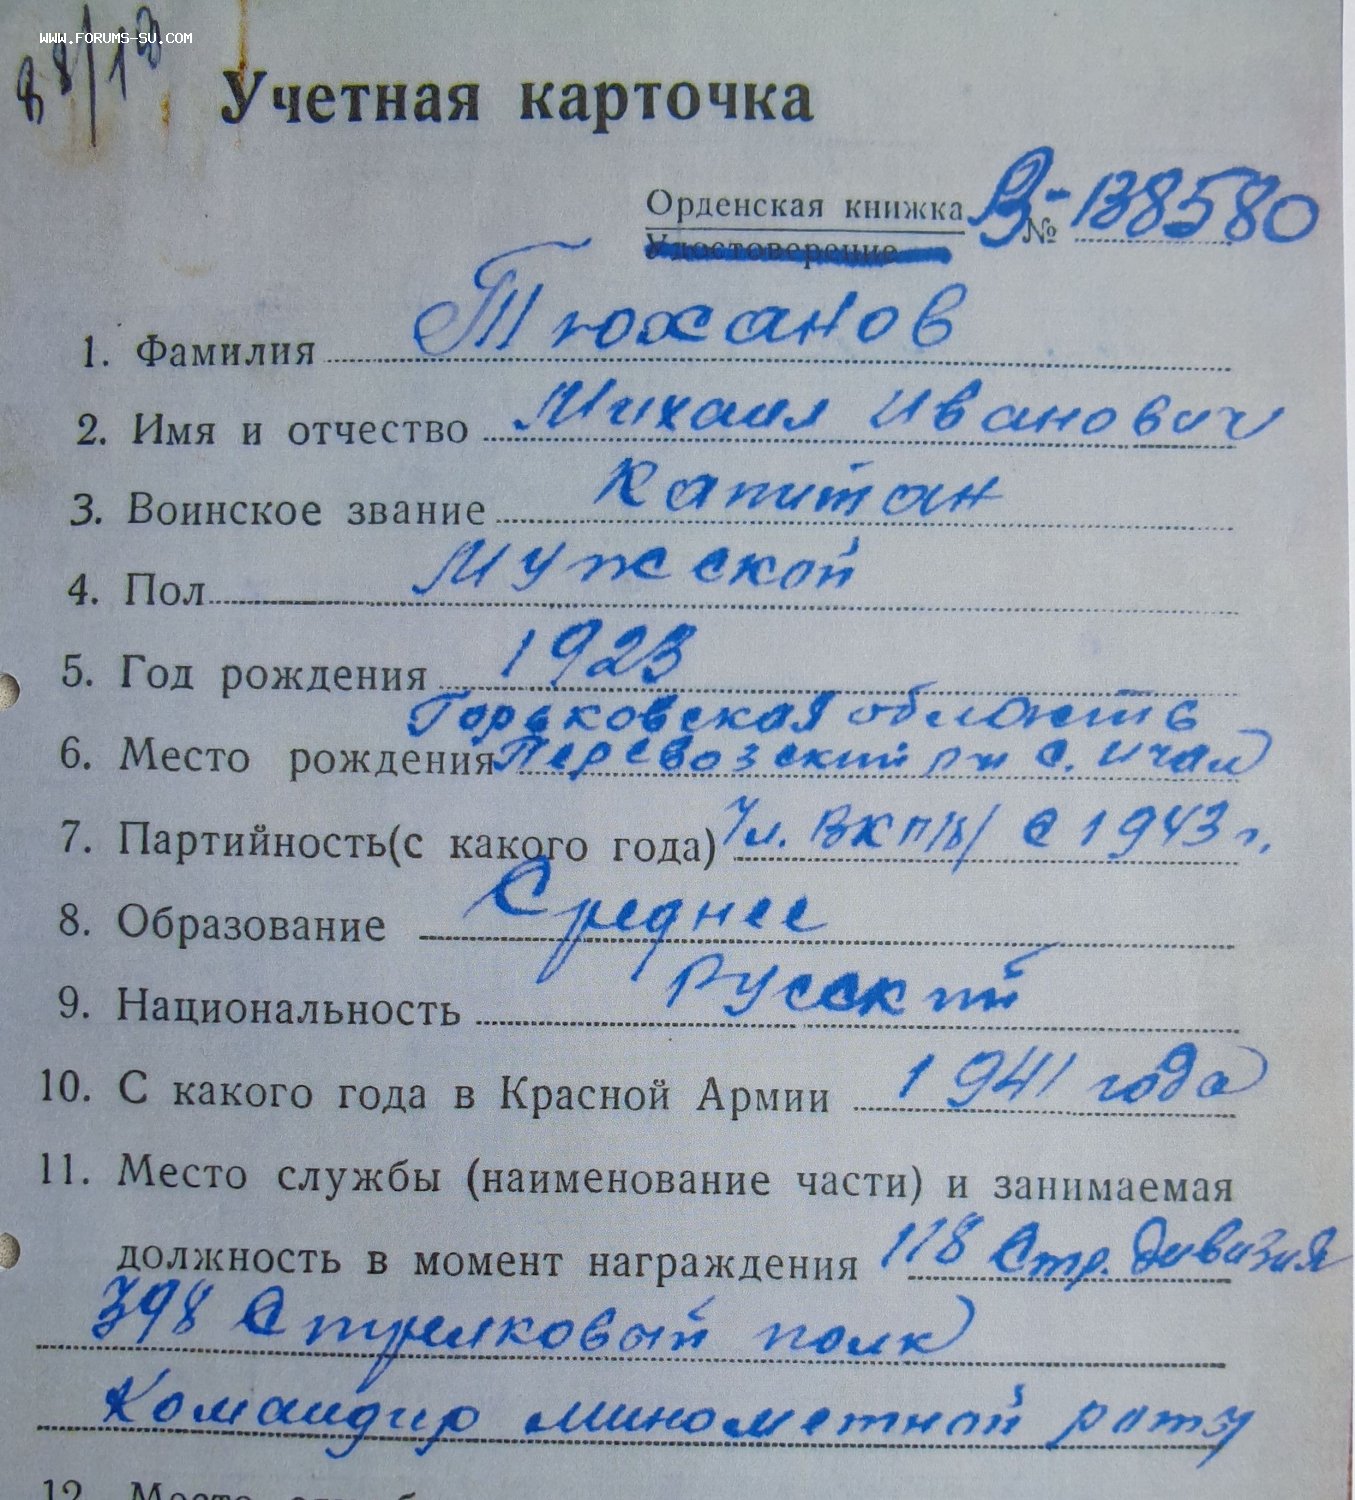 www.forums-su.com
Учетная карточка
Орденская книжка В № 138580
Удостоверение
1. Фамилия Тюханов
2. Имя и отчество Михаил Иванович
3. Воинское звание Капитан
4. Пол Мужской
5. Год рождения 1923
Горьковская область
6. Место рождения Перевозский р-н с. Ичал
7. Партийность (с какого года) Чл. ВКП/б/ с 1943 г.
8. Образование Среднее
9. Национальность Русский
10. С какого года в Красной Армии 1941 года
11. Место службы (наименование части) и занимаемая
должность в момент награждения 118 Стр. дивизия
398 Стрелковый полк
Командир минометной роты
12.